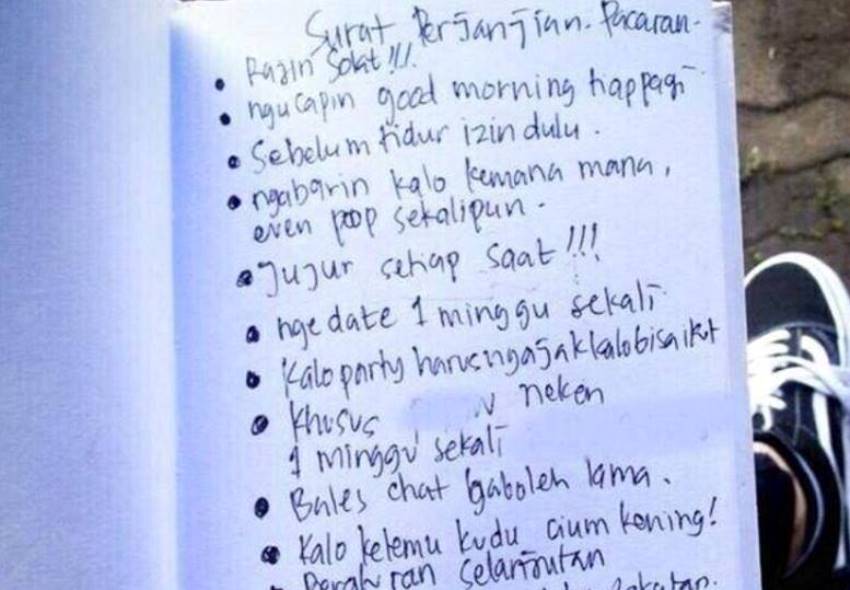 Surat Perjanjian. Pacaran.
• Rajin Solat!!!
• ngucapin good morning tiap pagi
• Sebelum tidur izin dulu.
• ngabarin kalo kemana mana,
even poop sekalipun.
• Jujur setiap saat!!!
• nge date 1 minggu sekali
• Kalo party harus ngajak kalo bisa ikut
• Khusus neken
1 minggu sekali
• Bales chat gaboleh lama.
• Kalo ketemu kudu cium kening!
• Peraturan selanjutan